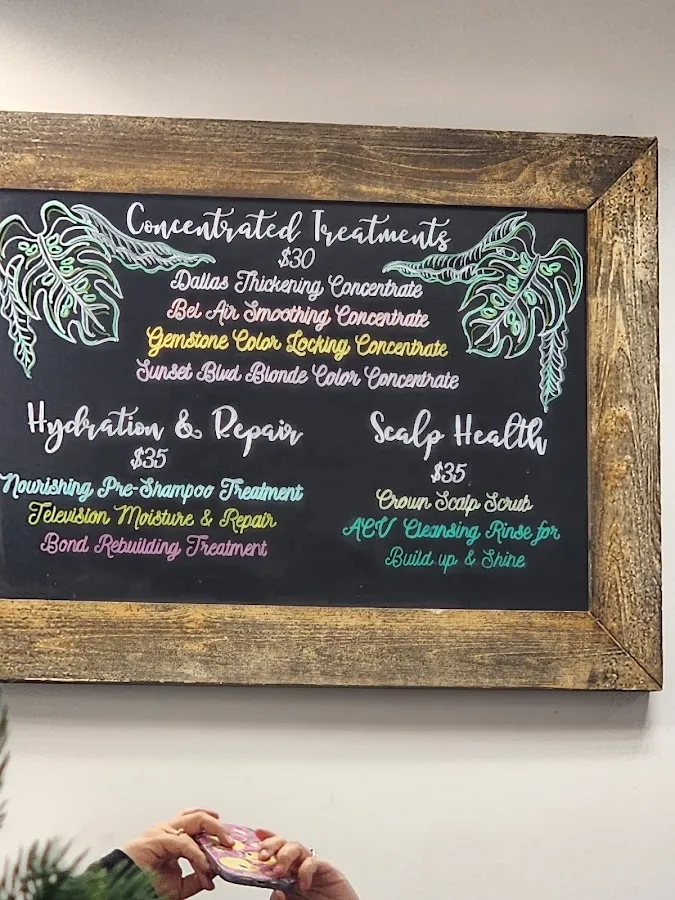 Concentrated Treatments
$30
Dallas Thickening Concentrate
Bel Air Smoothing Concentrate
Gemstone Color Locking Concentrate
Sunset Blvd Blonde Color Concentrate
Hydration & Repair
$35
Nourishing Pre-Shampoo Treatment
Television Moisture & Repair
Bond Rebuilding Treatment
Scalp Health
$35
Crown Scalp Scrub
ACV Cleansing Rinse for
Build up & Shine